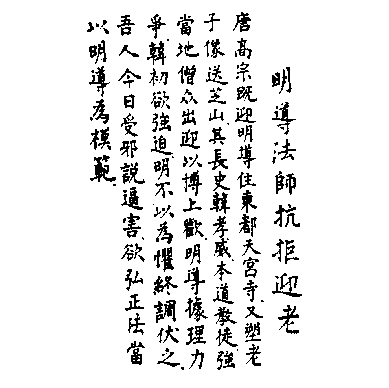 明導法師抗拒迎老
唐高宗既迎明導住東都天宮寺、又塑老
子像送芝山、其長史韓孝威、本道教徒、強
當地僧眾出迎、以博上歡、明導據理力
爭、韓初欲強迫、明不以為懼、終調伏之、
吾人今日受邪說逼害、欲弘正法、當
以明導為模範。